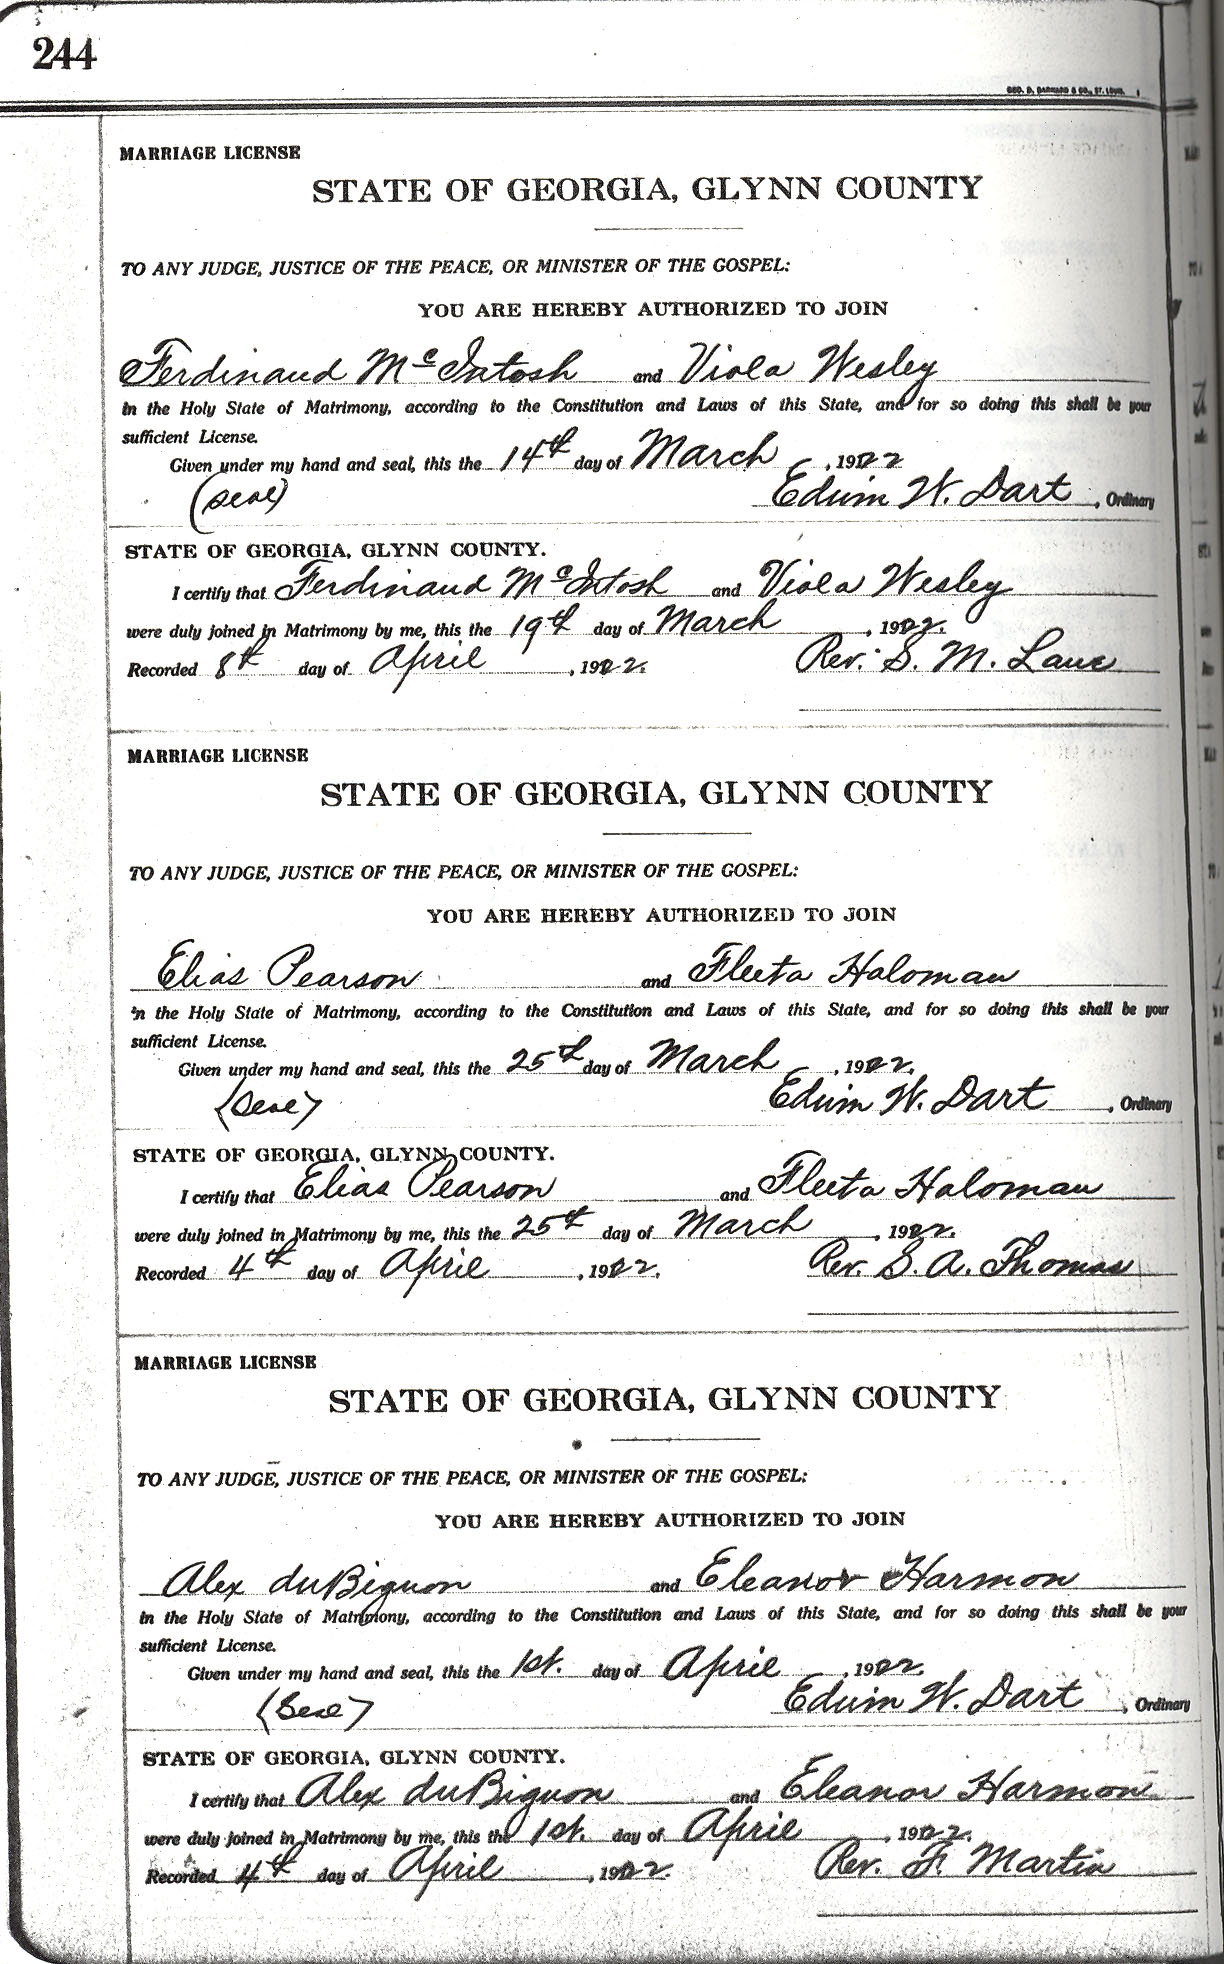 244
GEO. D. BARNARD & CO., ST. LOUIS.
MARRIAGE LICENSE
STATE OF GEORGIA, GLYNN COUNTY
TO ANY JUDGE, JUSTICE OF THE PEACE, OR MINISTER OF THE GOSPEL:
YOU ARE HEREBY AUTHORIZED TO JOIN
Ferdinaud McIntosh and Viola Wesley
in the Holy State of Matrimony, according to the Constitution and Laws of this State, and for so doing this shall be your
sufficient License.
Given under my hand and seal, this the 14th day of March, 1922
(seal) Edwin W. Dart, Ordinary
STATE OF GEORGIA, GLYNN COUNTY.
I certify that Ferdinaud McIntosh and Viola Wesley
were duly joined in Matrimony by me, this the 19th day of March, 1922.
Recorded 8th day of April, 1922. Rev. S. M. Lane
MARRIAGE LICENSE
STATE OF GEORGIA, GLYNN COUNTY
TO ANY JUDGE, JUSTICE OF THE PEACE, OR MINISTER OF THE GOSPEL:
YOU ARE HEREBY AUTHORIZED TO JOIN
Elias Pearson and Fleeta Haloman
in the Holy State of Matrimony, according to the Constitution and Laws of this State, and for so doing this shall be your
sufficient License.
Given under my hand and seal, this the 25th day of March, 1922.
(Seal) Edwin W. Dart, Ordinary
STATE OF GEORGIA, GLYNN COUNTY.
I certify that Elias Pearson and Fleeta Haloman
were duly joined in Matrimony by me, this the 25th day of March, 1922.
Recorded 4th day of April, 1922. Rev. S. A. Thomas
MARRIAGE LICENSE
STATE OF GEORGIA, GLYNN COUNTY
TO ANY JUDGE, JUSTICE OF THE PEACE, OR MINISTER OF THE GOSPEL:
YOU ARE HEREBY AUTHORIZED TO JOIN
Alex duBignon and Eleanor Harmon
in the Holy State of Matrimony, according to the Constitution and Laws of this State, and for so doing this shall be your
sufficient License.
Given under my hand and seal, this the 1st. day of April, 1922.
(Seal) Edwin W. Dart, Ordinary
STATE OF GEORGIA, GLYNN COUNTY.
I certify that Alex duBignon and Eleanor Harmon
were duly joined in Matrimony by me, this the 1st. day of April, 1922.
Recorded 4th day of April, 1922. Rev. F. Martin